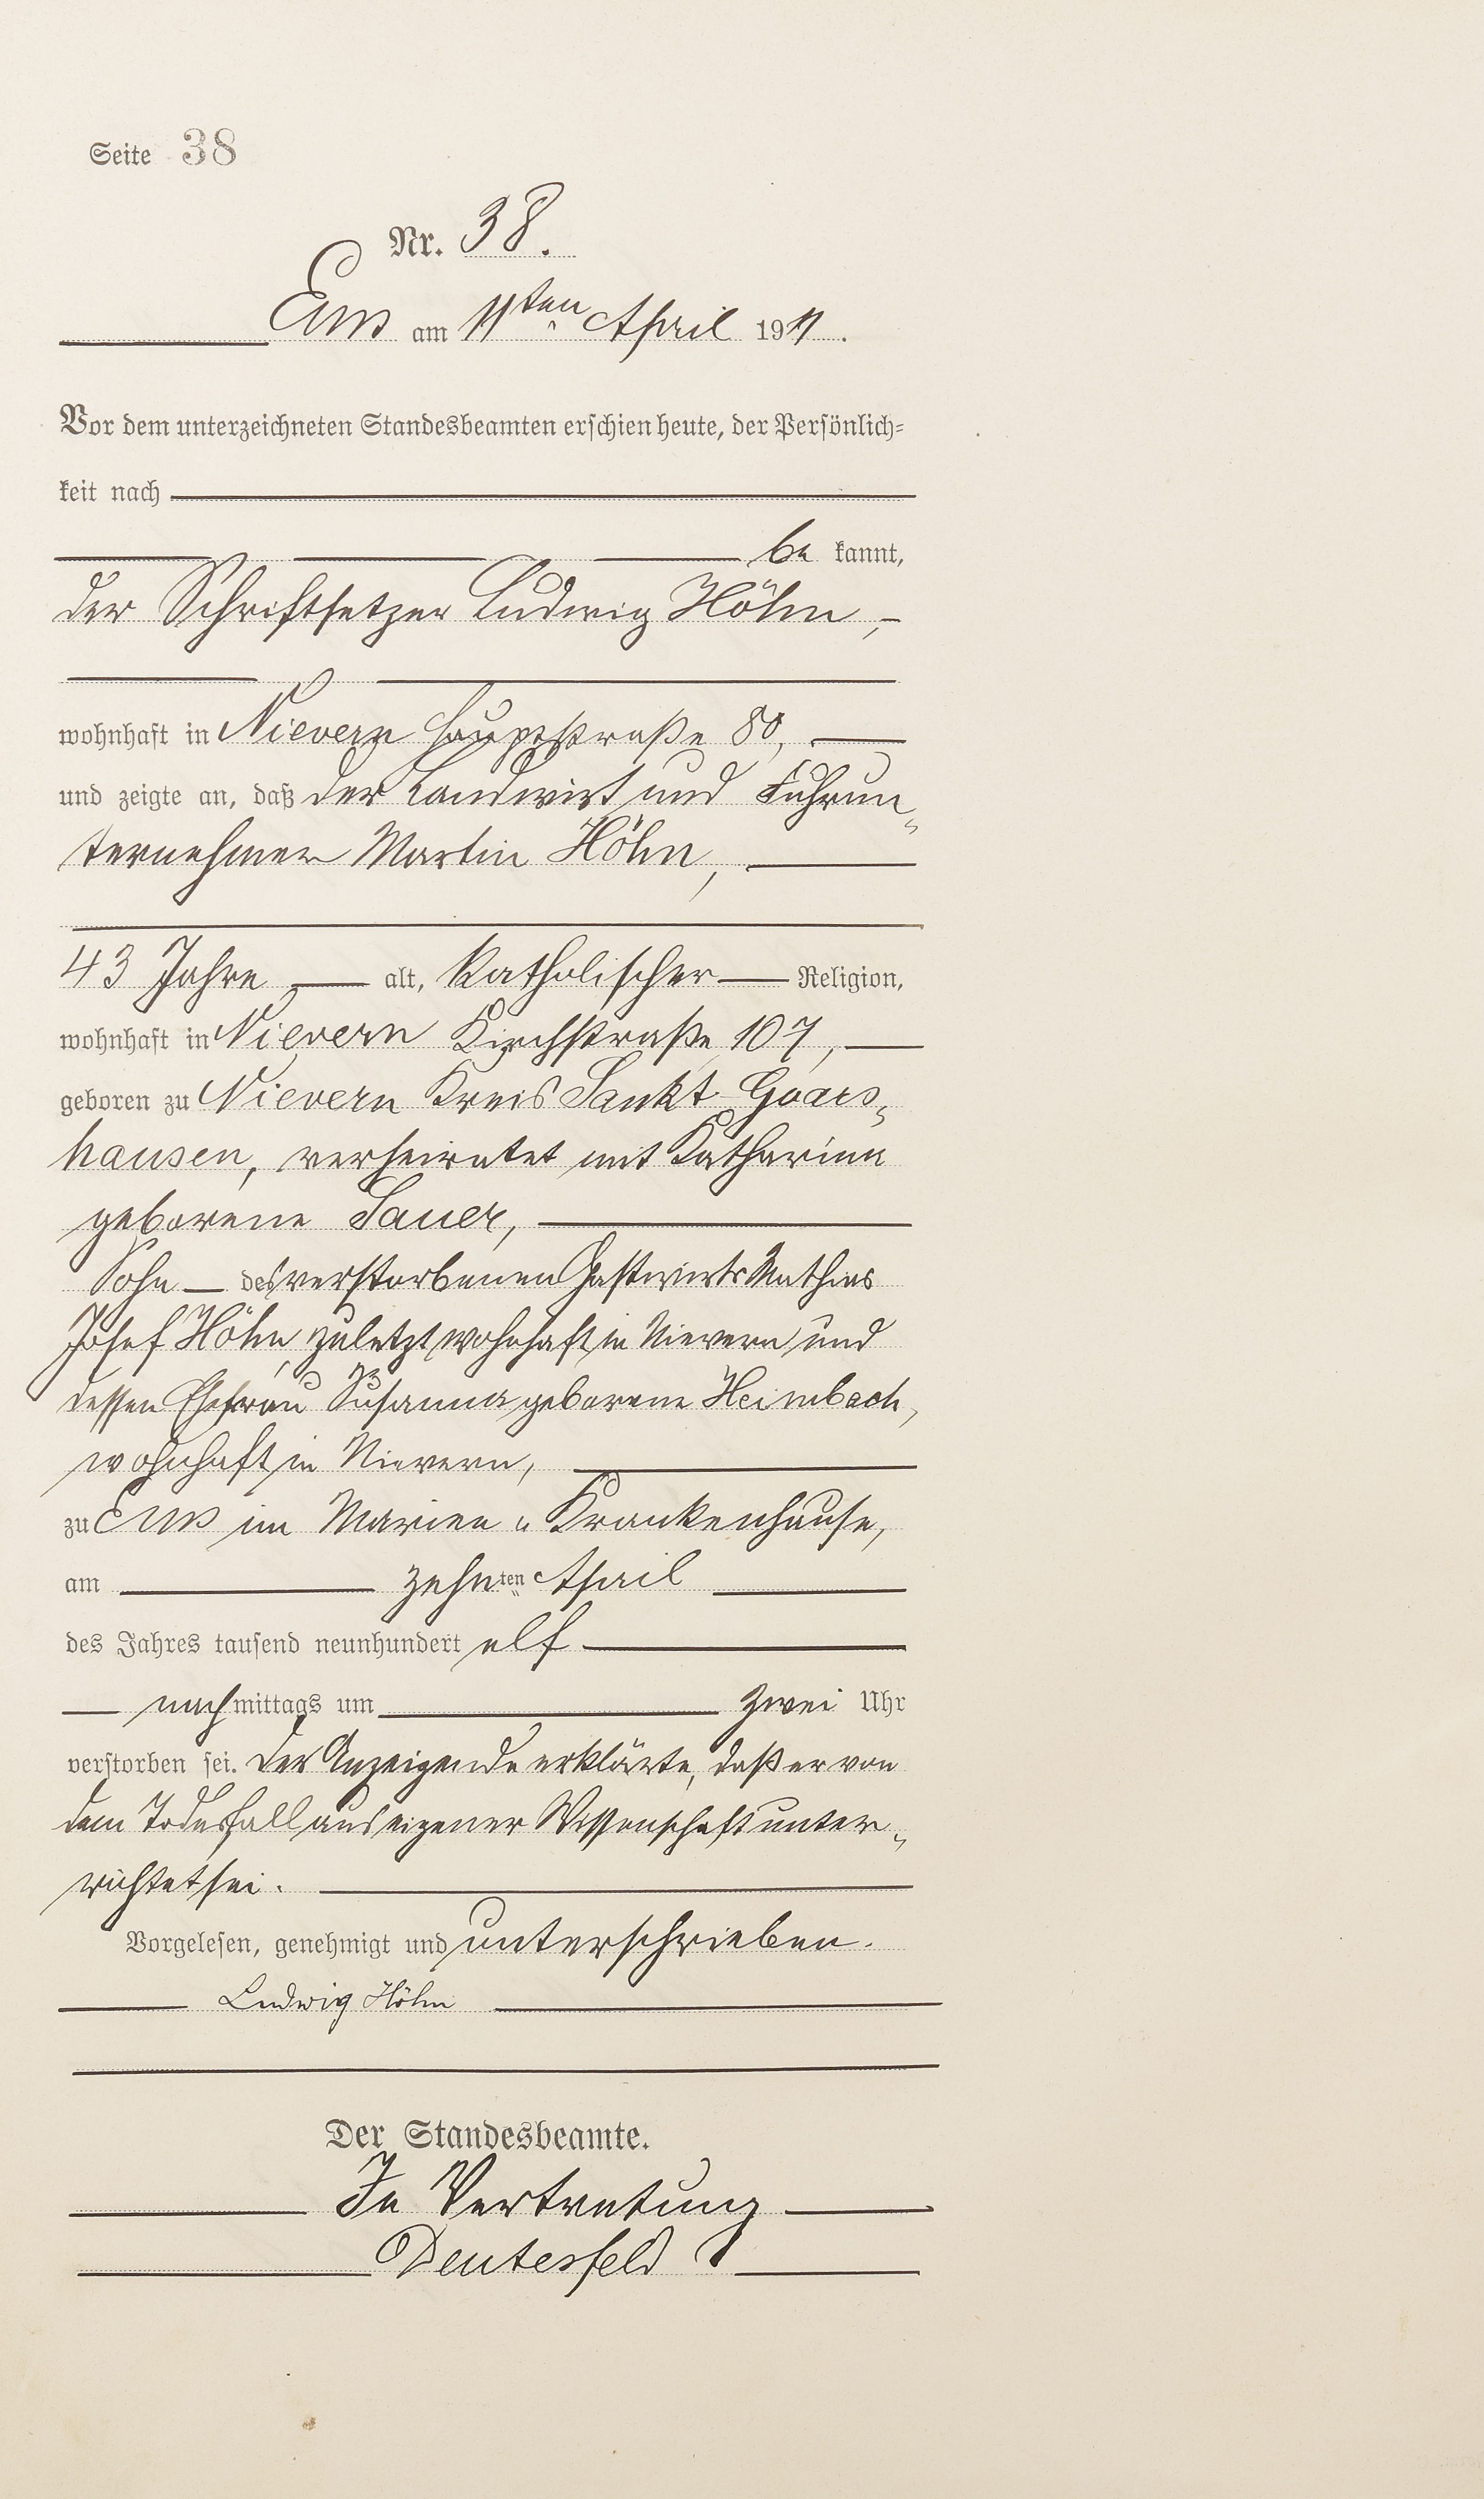 Seite 38
Nr. 38.
Ems am 11ten April 1911.
Vor dem unterzeichneten Standesbeamten erschien heute, der Persönlich-
keit nach
be kannt,
der Schriftsetzer Ludwig Höhn,
wohnhaft in Nievern Hauptstraße 80,
und zeigte an, daß der Landwirt und Fuhrun-
ternehmer Martin Höhn,
43 Jahre alt, katholischer Religion,
wohnhaft in Nievern Kirchstraße 107,
geboren zu Nievern Kreis Sankt Goars-
hausen, verheiratet mit Katharina
geborene Sauer,
Sohn des verstorbenen Gastwirts Mathias
Josef Höhn, zuletzt wohnhaft in Nievern und
dessen Ehefrau Susanna geborene Heimbach,
wohnhaft in Nievern,
zu Ems im Marien-Krankenhause,
am zehnten April
des Jahres tausend neunhundert elf
nachmittags um zwei Uhr
verstorben sei. Der Anzeigende erklärte, daß er von
dem Todesfall aus eigener Wissenschaft unter-
richtet sei.
Vorgelesen, genehmigt und unterschrieben.
Ludwig Höhn
Der Standesbeamte.
In Vertretung
Deutesfeld